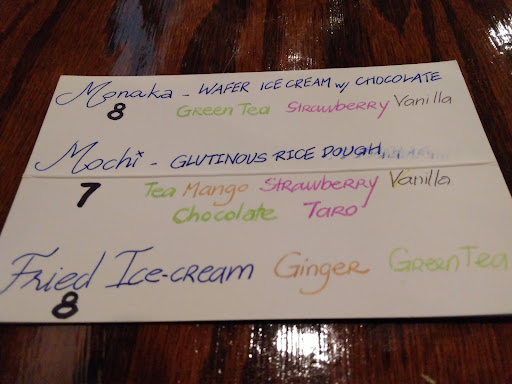 Monaka - WAFER ICE CREAM w/ CHOCOLATE
8 GREEN TEA STRAWBERRY Vanilla
Mochi - GLUTINOUS RICE DOUGH
7 Tea Mango STRAWBERRY Vanilla
Chocolate TARO
Fried Ice-cream Ginger GREEN TEA
8